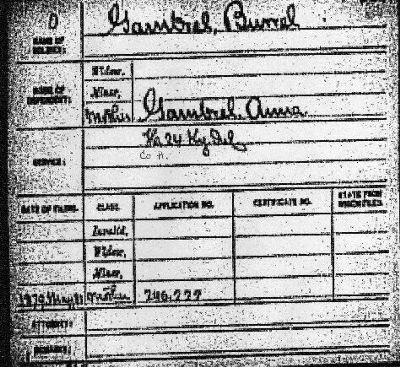 NAME OF SOLDIER: Gambrel, Burrel
NAME OF DEPENDENT: Widow,
Minor,
Mother Gambrel, Anna
SERVICE: 24 Ky. Inf.
Co H.
DATE OF FILING. CLASS. APPLICATION NO. CERTIFICATE NO. STATE FROM WHICH FILED.
Invalid,
Widow,
Minor,
1879 May Mother 246,222
ATTORNEY:
REMARKS: